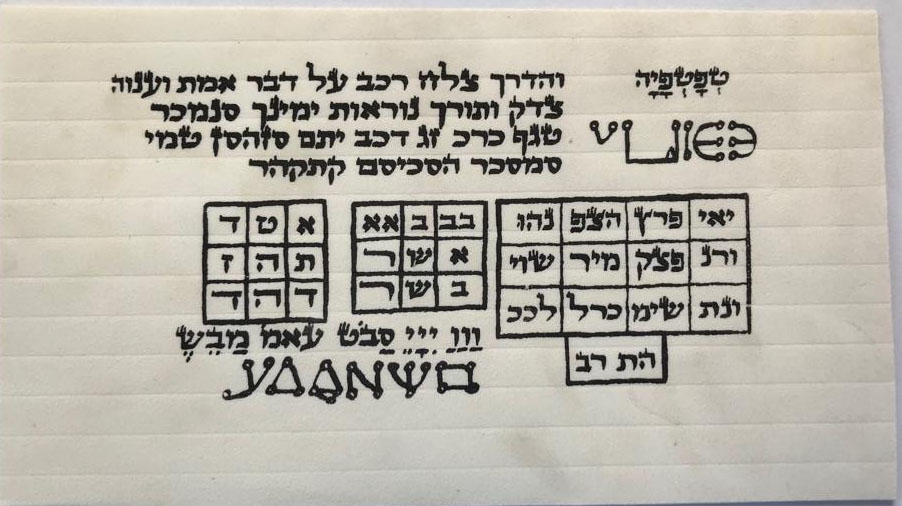 טפטפיה
והדרך צלח רכב על דבר אמת וענוה
צדק ותורך נוראות ימינך סנמכר
טגף כרכ זג דכב יתם
סמסכר הסכיסם קתקהר
יאי פרץ הצפ נהו
ורנ פצק מיר שוי
ונת שימו כרל לככ
הת רב
בב ב אא
א ש ר
ב ש ר
א ט ד
ת ה ז
ד ה ד
ווו ייי סבט עאמ מבש